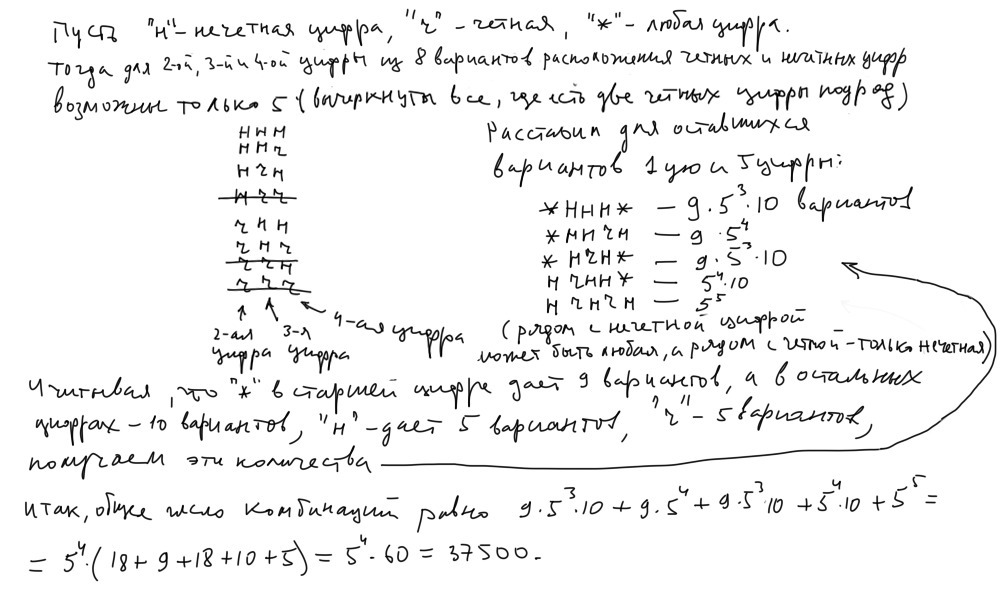 Пусть "н"-нечетная цифра, "ч"-четная, "*"-любая цифра.
Тогда для 2-ой, 3-ьй и 4-ой цифры из 8 вариантов расположения четных и нечетных цифр
возможны только 5 (вычеркнуты все, где есть две четных цифры подряд)
ННН
ННЧ
НЧН
НЧЧ
ЧНН
ЧНЧ
ЧЧН
ЧЧЧ
2-ая цифра
3-я цифра
4-ая цифра
Расставим для оставшихся
вариантов 1ую и 5 цифры:
*ННН* — 9·5³·10 вариантов
*ННЧН — 9·5⁴
*НЧН* — 9·5³·10
НЧНН* — 5⁴·10
НЧНЧН — 5⁵
(рядом с нечетной цифрой
может быть любая, а рядом с четной-только нечетная)
Учитывая, что "*" в старшей цифре дает 9 вариантов, а в остальных
цифрах-10 вариантов, "н"-дает 5 вариантов, "ч"-5 вариантов,
получаем эти количества
Итак, общее число комбинаций равно 9·5³·10+9·5⁴+9·5³·10+5⁴·10+5⁵=
=5⁴·(18+9+18+10+5)=5⁴·60=37500.